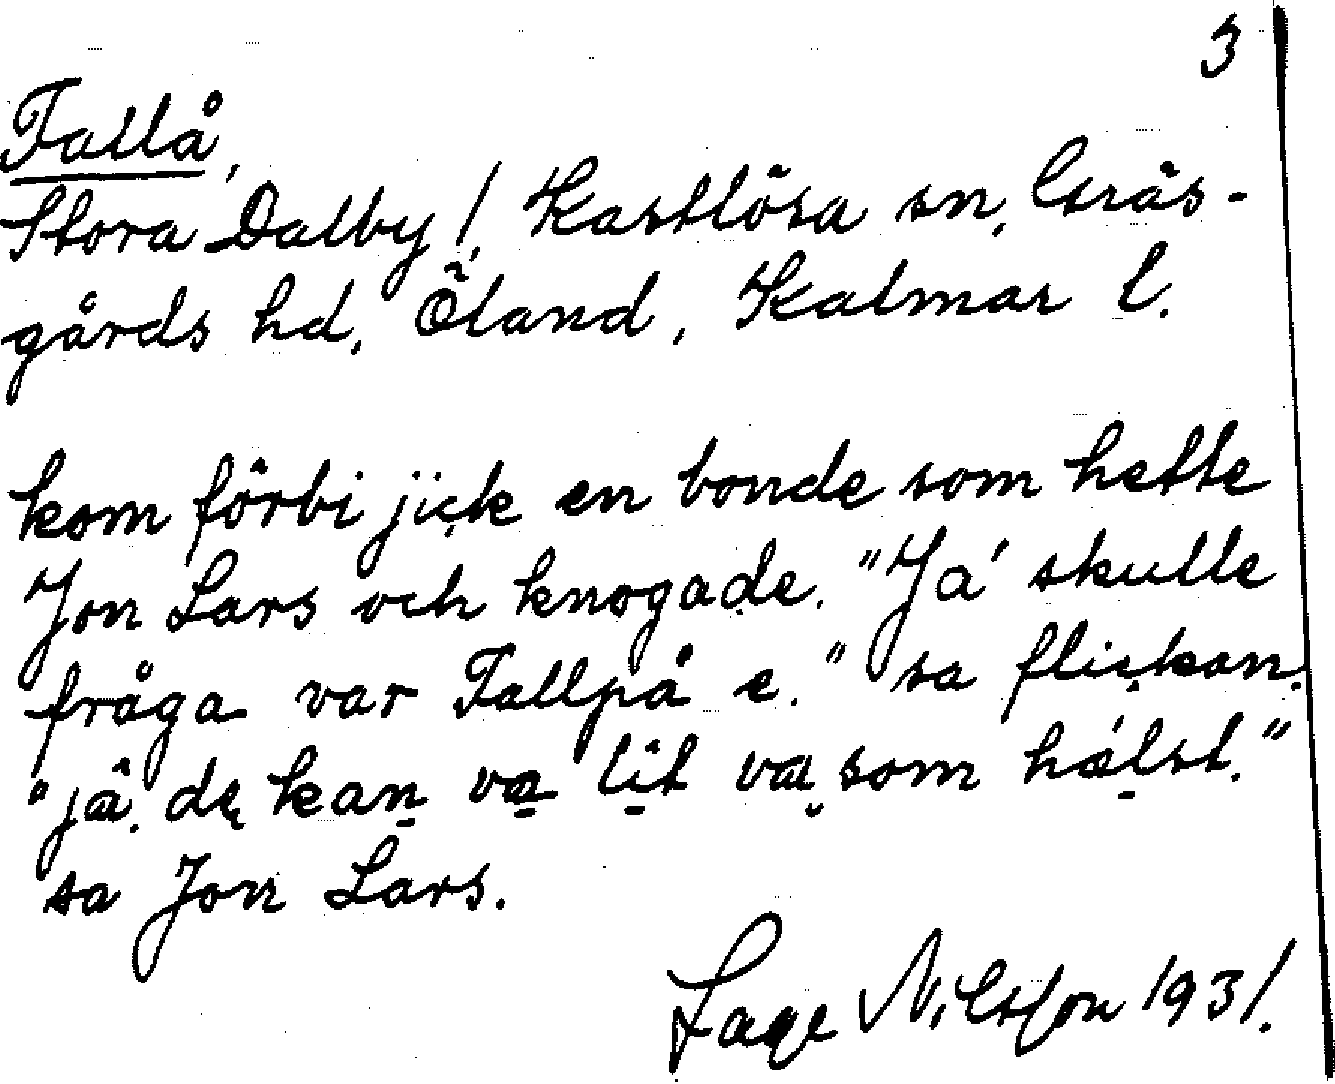 3
Fallå,
Stora Dalby /, Kastlösa sn, Gräs-
gårds hd, Öland, Kalmar l.
kom förbi jick en bonde som hette
Jon Lars och knogade. "Ja' skulle
fråga var Fallpå e." sa flickan.
"jâ. dę kan va lît va som hálst."
sa Jon Lars.
Lage Nilsson 1931.